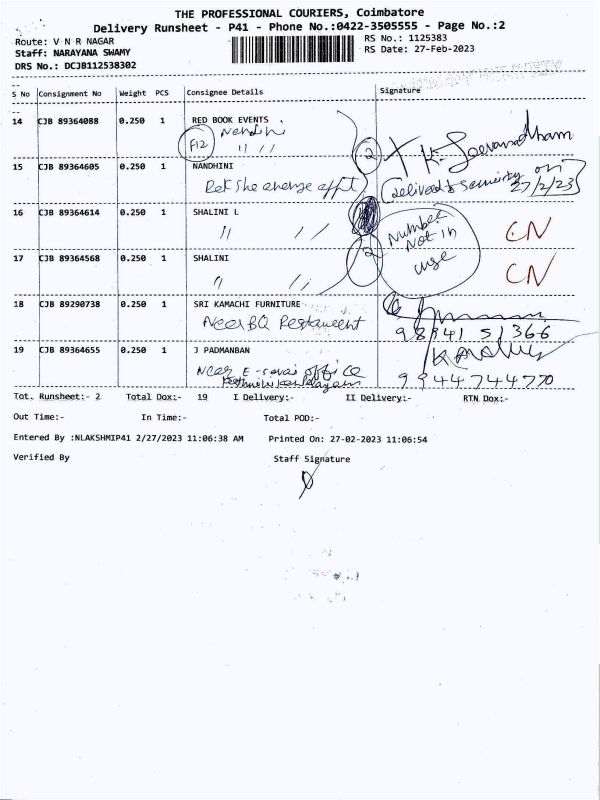 THE PROFESSIONAL COURIERS, Coimbatore
Delivery Runsheet - P41 - Phone No.:0422-3505555 - Page No.:2
Route: V N R NAGAR
RS No.: 1125383
Staff: NARAYANA SWAMY
RS Date: 27-Feb-2023
DRS No.: DCJB112538302
S No Consignment No Weight PCS Consignee Details Signature
14 CJB 89364088 0.250 1 RED BOOK EVENTS
F12 Nandini
2
15 CJB 89364605 0.250 1 NANDHINI
Delivered to security on
27/2/23
16 CJB 89364614 0.250 1 SHALINI L
Number
Not in
use
CN
17 CJB 89364568 0.250 1 SHALINI
2
CN
18 CJB 89290738 0.250 1 SRI KAMACHI FURNITURE
Near BQ Restaurent
98941 51366
19 CJB 89364655 0.250 1 J PADMANBAN
Near E-sevai office
9944744770
Tot. Runsheet:- 2 Total Dox:- 19 I Delivery:- II Delivery:- RTN Dox:-
Out Time:- In Time:- Total POD:-
Entered By :NLAKSHMIP41 2/27/2023 11:06:38 AM Printed On: 27-02-2023 11:06:54
Verified By Staff Signature